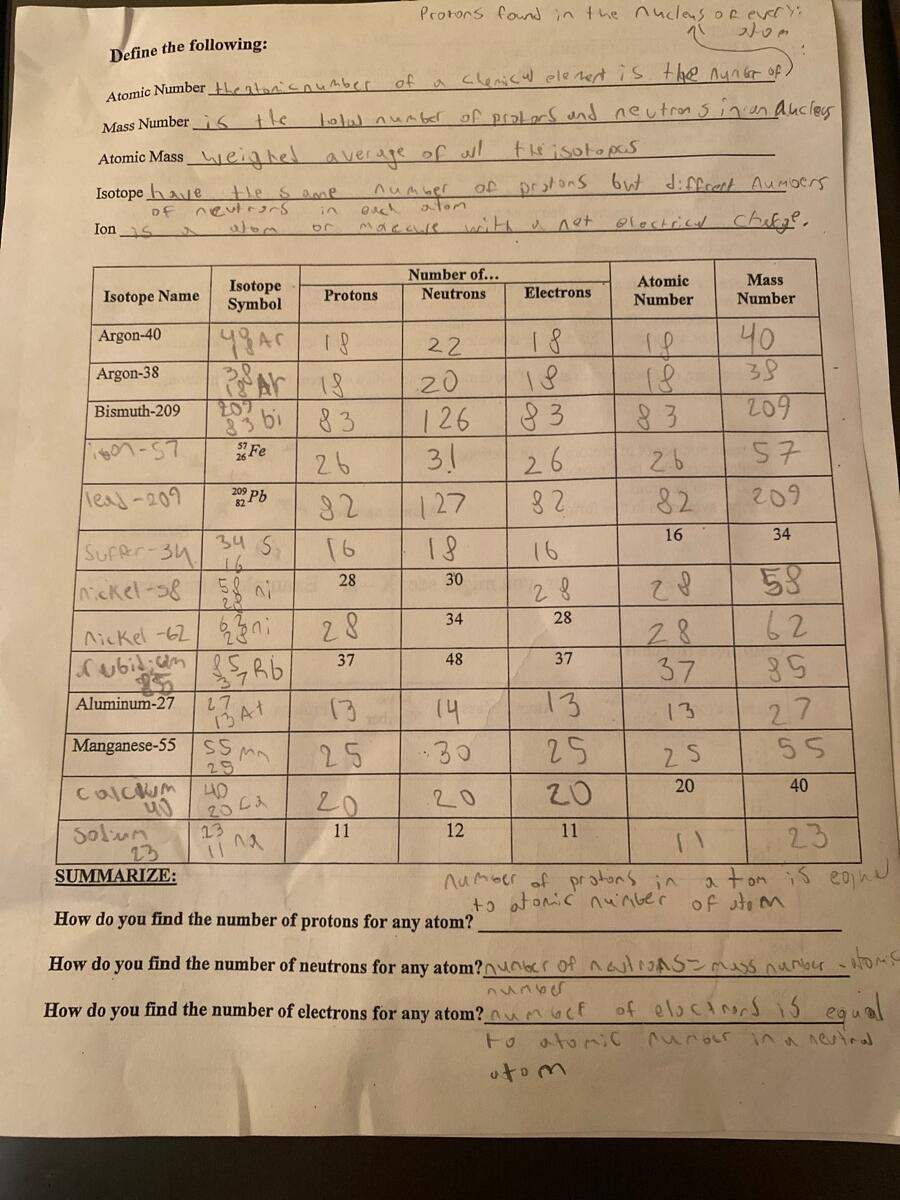 Protons found in the nucleus of every
atom
Define the following:
Atomic Number the atomic number of a chemical element is the number of
Mass Number is the total number of protons and neutrons in an nucleus
Atomic Mass weighed average of all the isotopes
Isotope have the same number of protons but diffrent numbers
of neutrons in each atom
Ion is a atom or molecule with a net electrical charge.
Number of...
Isotope Name Isotope Symbol Protons Neutrons Electrons Atomic Number Mass Number
Argon-40 40 18 Ar 18 22 18 18 40
Argon-38 38 18 Ar 18 20 18 18 38
Bismuth-209 209 83 bi 83 126 83 83 209
iron-57 57 26 Fe 26 31 26 26 57
lead-209 209 82 Pb 82 127 82 82 209
Sulfer-34 34 16 S 16 18 16 16 34
nickel-58 58 28 ni 28 30 28 28 58
nickel-62 62 28 ni 28 34 28 28 62
rubidium 85 85 37 Rb 37 48 37 37 85
Aluminum-27 27 13 Al 13 14 13 13 27
Manganese-55 55 25 Mn 25 30 25 25 55
calcium 40 40 20 Ca 20 20 20 20 40
Sodium 23 23 11 na 11 12 11 11 23
SUMMARIZE:
number of protons in a atom is equal
to atomic number of atom
How do you find the number of protons for any atom?
How do you find the number of neutrons for any atom? number of neutrons = mass number - atomic
number
How do you find the number of electrons for any atom? number of electrons is equal
to atomic number in a neutral
atom